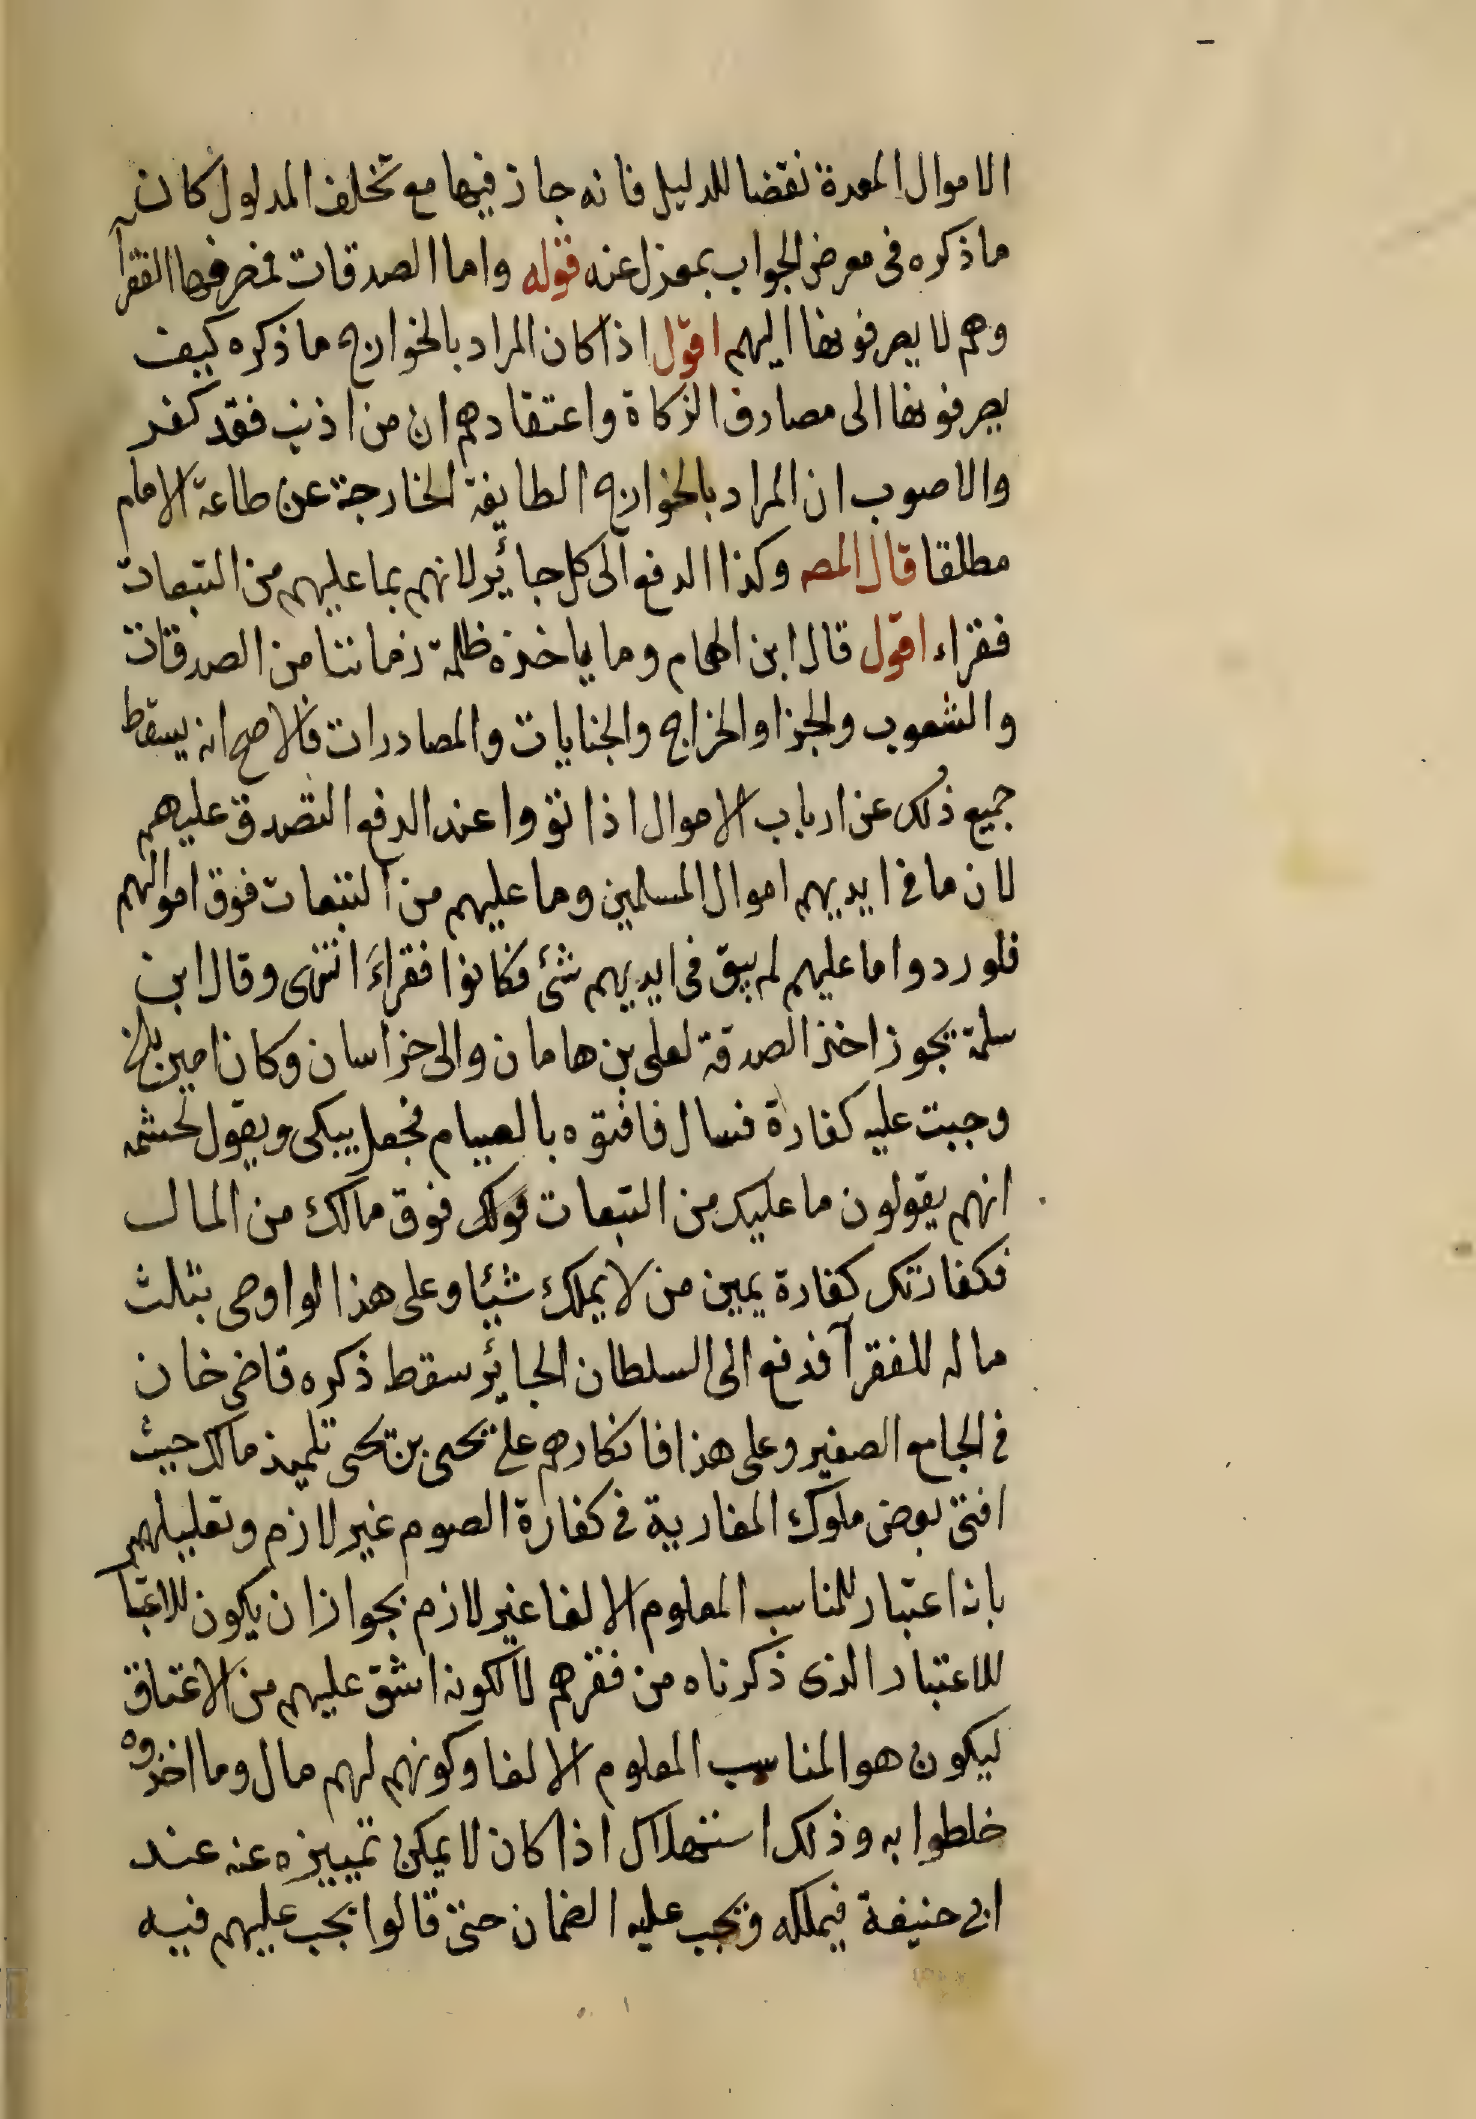 الاموال المعدة نقضا للدليل فانه جاز فيها مع تخلف المدلول كان
ما ذكره فى معرض الجواب بمعزل عنه قوله واما الصدقات فمصرفها الفقرآ
وهم لا يصرفونها اليهم اقول اذا كان المراد بالخوارج ما ذكره كيف
يصرفونها الى مصارف الزكاة واعتقادهم ان من اذنب فقد كفر
والاصوب ان المراد بالخوارج الطايفة الخارجة عن طاعة الامام
مطلقا قال المصه وكذا الدفع الى كل جائير لانهم بما عليهم من التبعات
فقراء اقول قال ابن الهمام وما ياخذه ظلمة زماننا من الصدقات
والشعوب والجزا والخراج والجنايات والمصادرات فالاصح انه يسقط
جميع ذلك عن ارباب الاموال اذا نووا عند الدفع التصدق عليهم
لان ما فى ايديهم اموال المسلمين وما عليهم من التبعات فوق اموالهم
فلو ردوا ما عليهم لم يبق فى ايديهم شئ فكانوا فقراء انتهى وقال ابن
سلمة يجوز اخذ الصدقة لعلى بن هامان والى خراسان وكان امير بلخ
وجبت عليه كفارة فسال فافتوه بالصيام فجعل يبكى ويقول لحشمه
انهم يقولون ما عليك من التبعات فوق مالك من المال
فكفارتك كفارة يمين من لا يملك شيئا وعلى هذا لو اوصى بثلث
ماله للفقرآ فدفع الى السلطان الجايئر سقط ذكره قاضى خان
فى الجامع الصغير وعلى هذا فانكارهم على يحيى بن يحيى تلميذ مالك حيث
افتى بعض ملوك المغاربة فى كفارة الصوم غير لازم وتعليلهم
بانه اعتبار للمناسب المعلوم الالغا غير لازم بجواز ان يكون للاعتبا
للاعتبار الذى ذكرناه من فقرهم لا لكونه اشق عليهم من الاعتاق
ليكون هو المناسب المعلوم الالغا وكونهم لهم مال وما اخذوه
خلطوا به وذلك استهلاك اذا كان لا يمكن تمييزه عنه عند
ابى حنيفة فيملكه ويجب عليه الضمان حتى قالوا يجب عليهم فيه